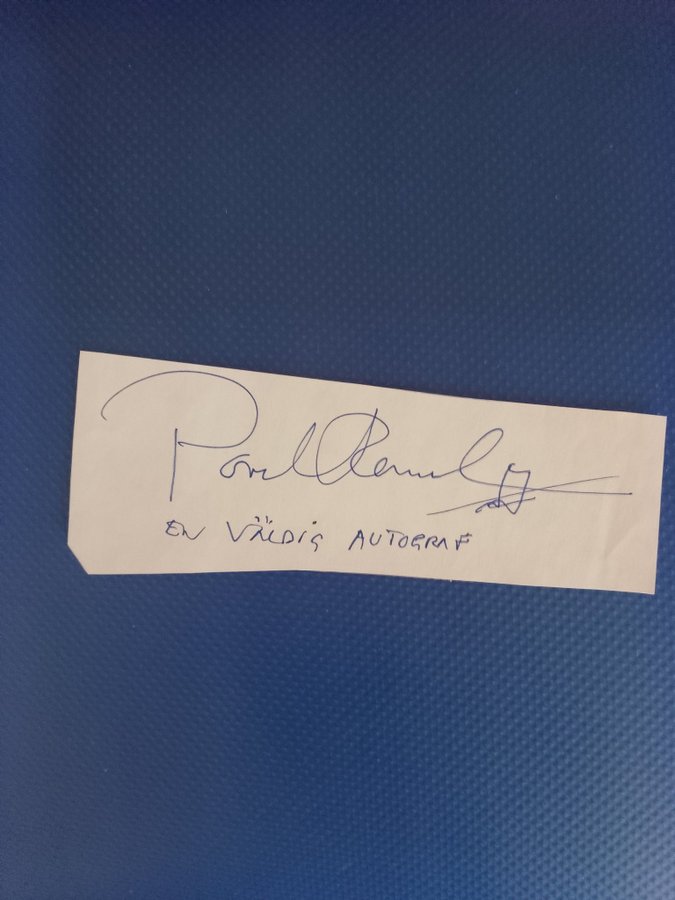 Povel Ramel
EN VÄLDIG AUTOGRAF